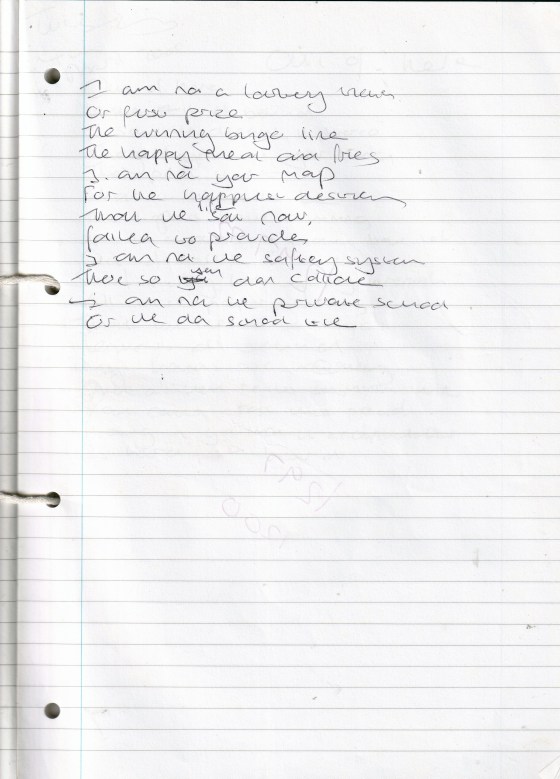 I am not a lottery
Or first prize
The winning bingo line
The happy meal and fries
I am not your map
For the happiest
than the life you now,
failed to provide
I am not the safety system
Here so you dont collide
I am not the private school
Or the old school tie